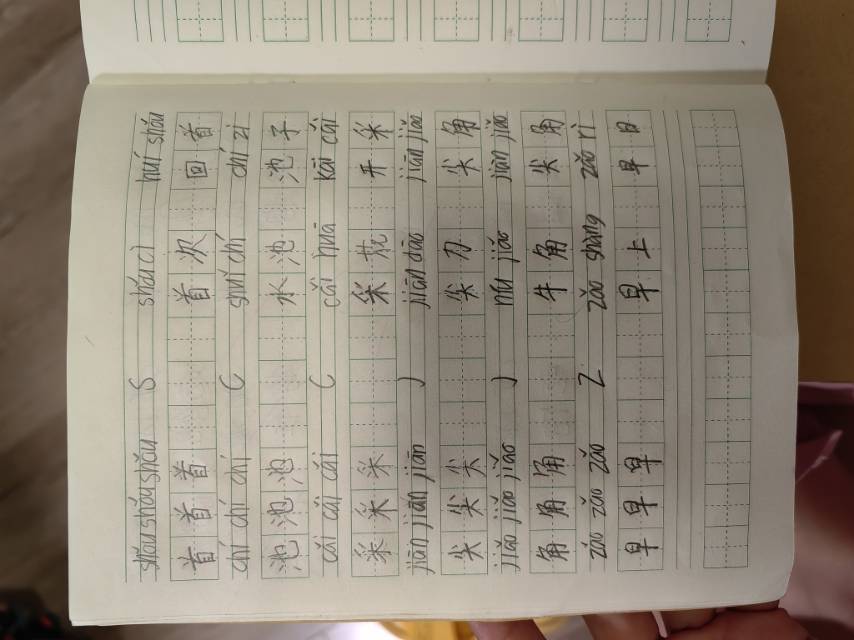 shǒu shǒu shǒu S shǒu cì huí shǒu
首 首 首 首 次 回 首
chí chí chí C shuǐ chí chí zi
池 池 池 水 池 池 子
cǎi cǎi cǎi C cǎi huā kāi cǎi
采 采 采 采 花 开 采
jiān jiān jiān J jiān dāo jiān jiǎo
尖 尖 尖 尖 刀 尖 角
jiǎo jiǎo jiǎo J niú jiǎo jiān jiǎo
角 角 角 牛 角 尖 角
zǎo zǎo zǎo Z zǎo shàng zǎo rì
早 早 早 早 上 早 日